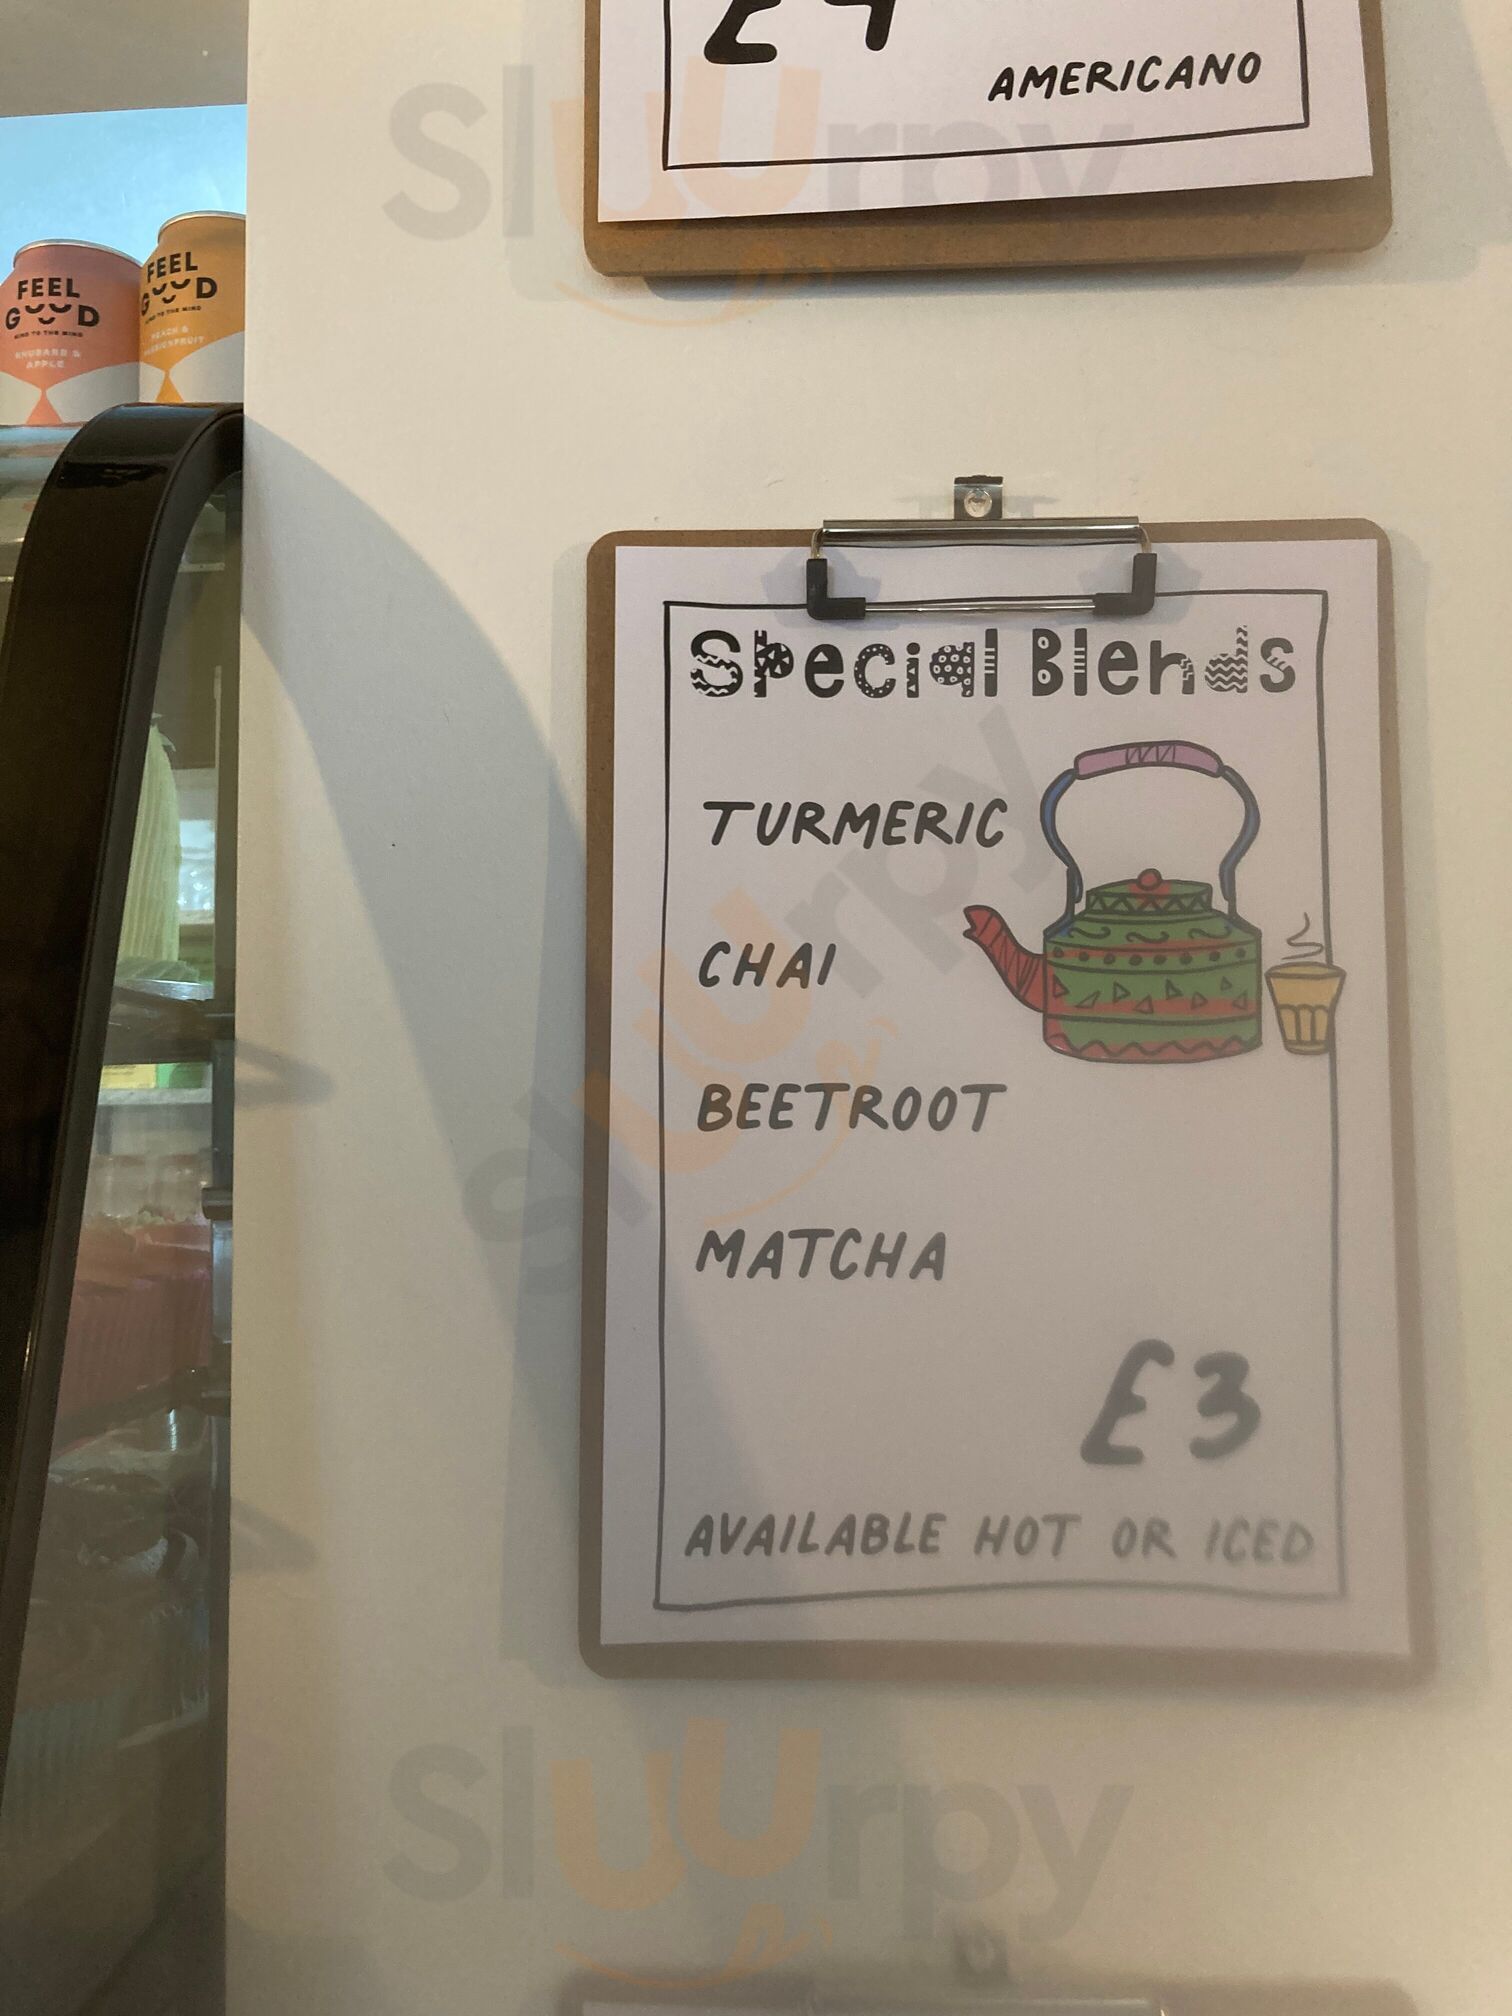 £4
AMERICANO
Sluurpy
FEEL
GOOD
KIND TO THE MIND
RHUBARB &
APPLE
FEEL
GOOD
KIND TO THE MIND
PEACH &
PASSIONFRUIT
Special Blends
TURMERIC
CHAI
BEETROOT
MATCHA
£3
AVAILABLE HOT OR ICED
Sluurpy
Sluurpy